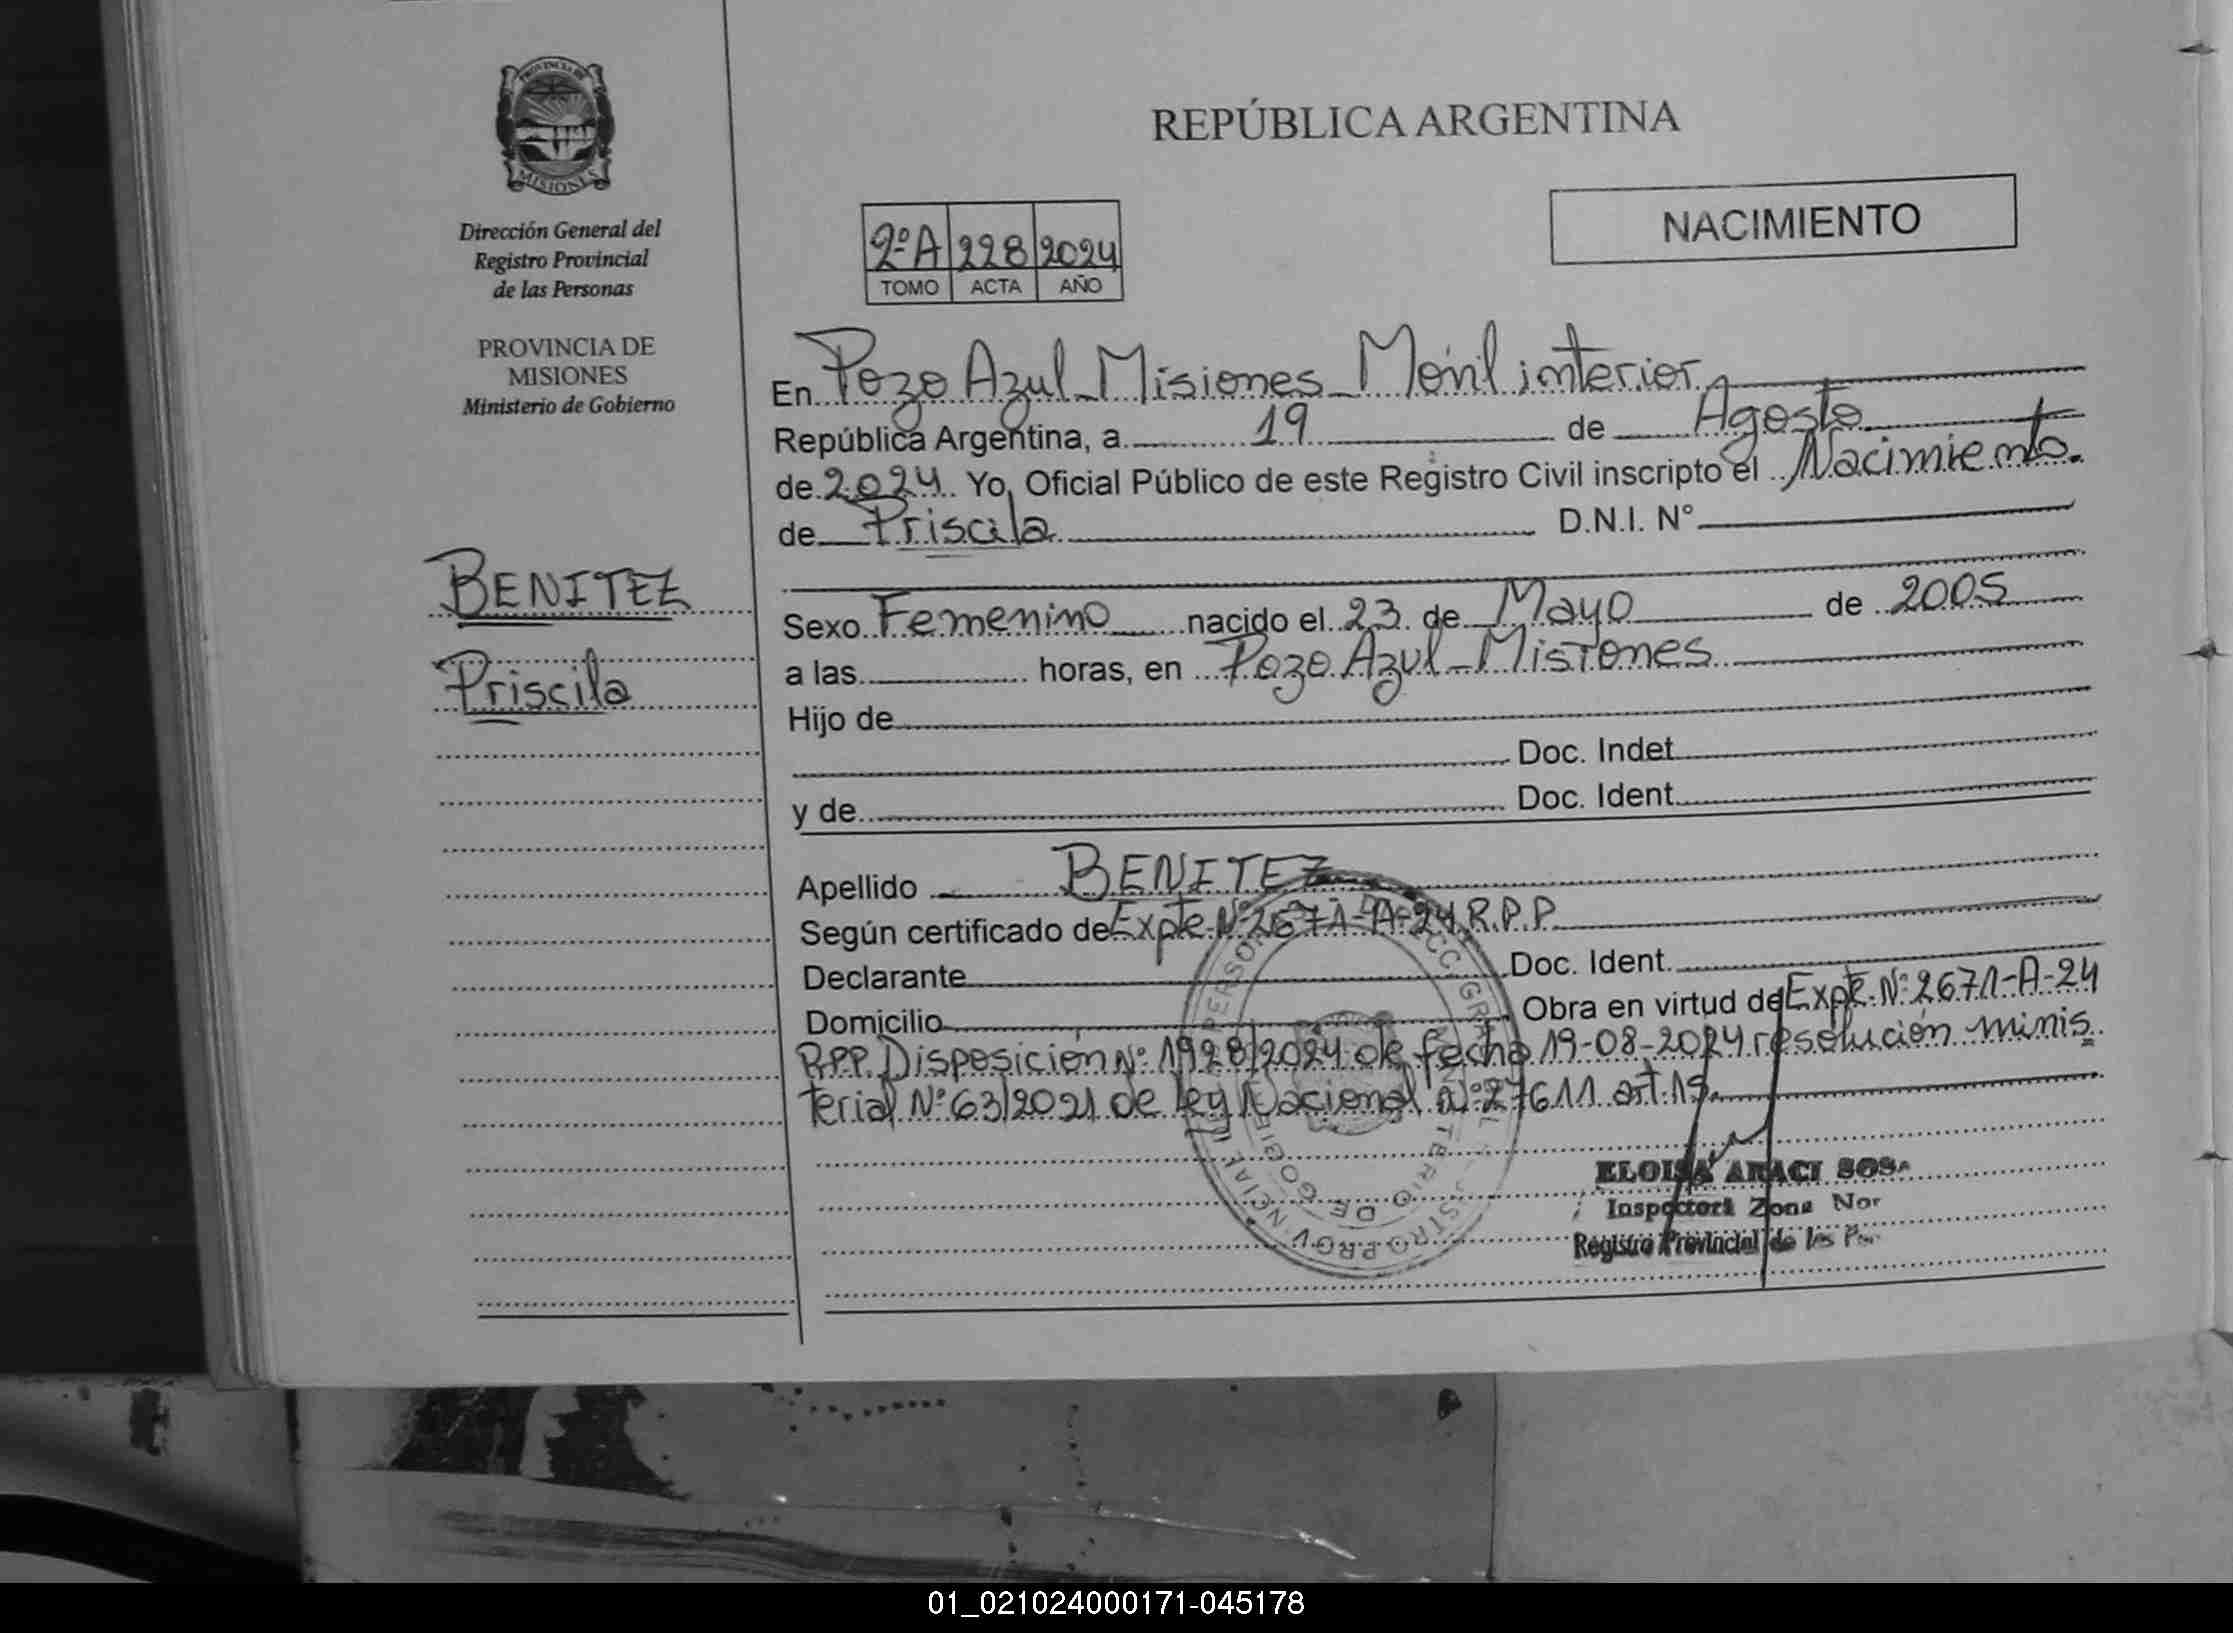 PROVINCIA DE
MISIONES
Dirección General del
Registro Provincial
de las Personas
PROVINCIA DE
MISIONES
Ministerio de Gobierno
BENITEZ
Priscila
REPÚBLICA ARGENTINA
NACIMIENTO
2º A 228 2024
TOMO ACTA AÑO
En Pozo Azul - Misiones - Móvil interior
República Argentina, a 19 de Agosto
de 2024 Yo, Oficial Público de este Registro Civil inscripto el Nacimiento.
de Priscila D.N.I. N°
Sexo Femenino nacido el 23 de Mayo de 2005
a las horas, en Pozo Azul - Misiones
Hijo de
Doc. Indet
y de Doc. Ident
Apellido BENITEZ
Según certificado de Expte. Nº 2671-A-24 R.P.P.
Declarante Doc. Ident.
Domicilio Obra en virtud de Expte. Nº 2671-A-24
R.P.P. Disposición Nº 1928/2024 de fecha 19-08-2024 resolución minis
terial Nº 63/2021 de ley Nacional Nº 27611 art.
ELOISA ARACI SOSA
Inspectora Zona Nor
Registro Provincial de las Per
01_021024000171-045178